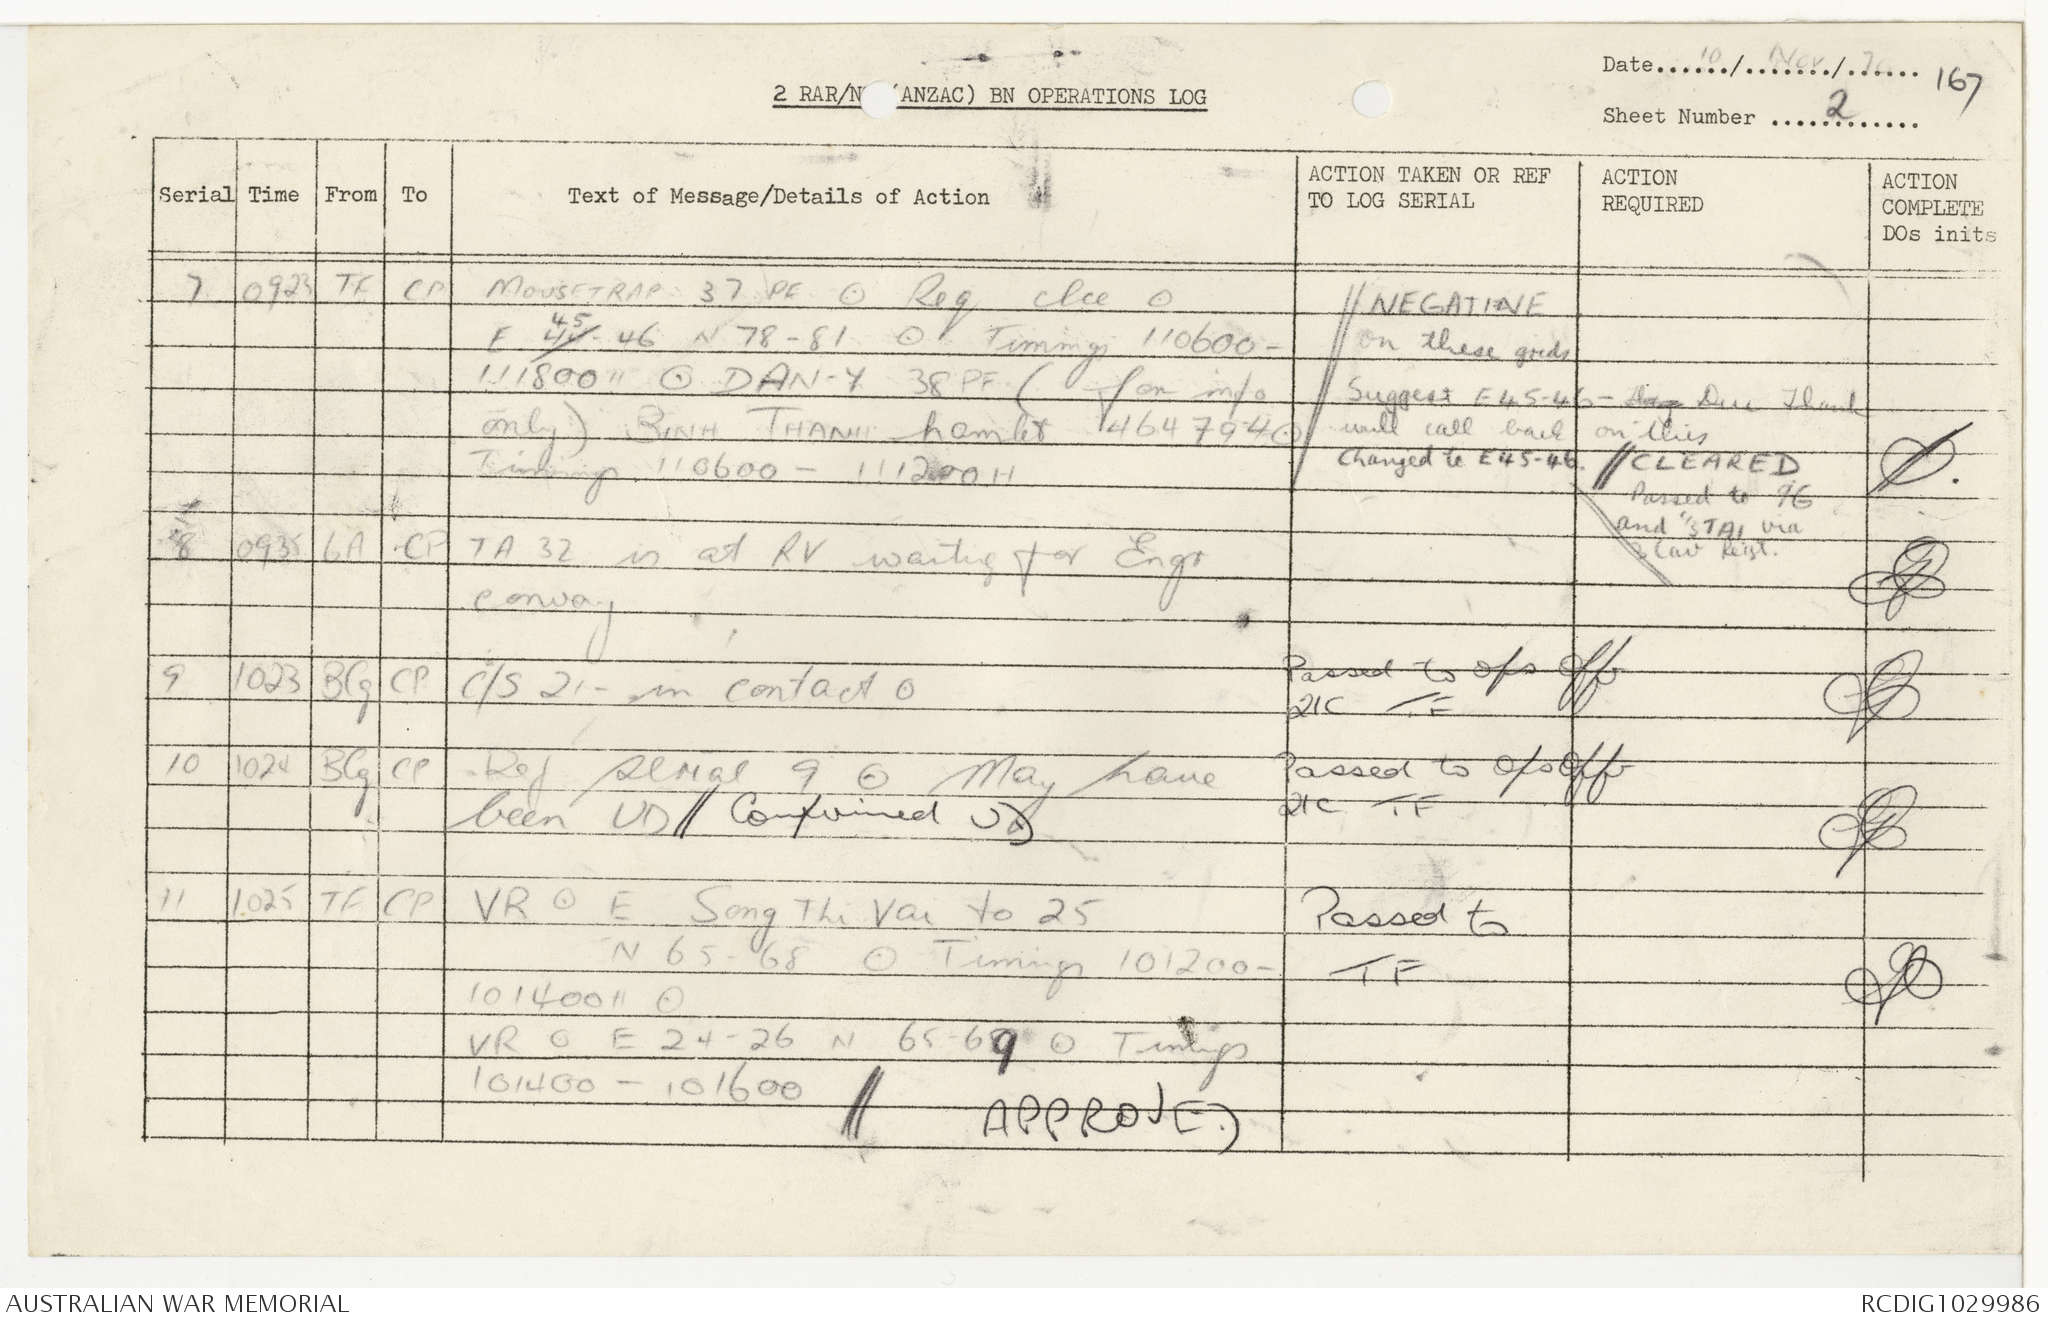 Date 10 / Nov / 70
167
2 RAR/N (ANZAC) BN OPERATIONS LOG
Sheet Number 2
Serial Time From To Text of Message/Details of Action ACTION TAKEN OR REF TO LOG SERIAL ACTION REQUIRED ACTION COMPLETE DOs inits
7 0923 TF CP MOUSETRAP 37 PF ⊙ Req clce ⊙
E 45-46 N 78-81 ⊙ Timings 110600-
111800H ⊙ DAN-Y 38 PF (for info
only) BINH THANH hamlet 464794 ⊙
Timings 110600 - 111200H
// NEGATIVE
on these grids
Suggest E45-46 - Duc Thanh
will call back on this
Changed to E45-46. // CLEARED
Passed to 9G
and 1/3 TAI via
3 Cav Regt.
8 0935 6A CP TA 32 is at RV waiting for Engr
convoy
9 1023 BCg CP C/S 21 - in contact ⊙
Passed to Ops Offr
2IC TF
10 1024 BCg CP Ref serial 9 ⊙ May have
been UD // Confirmed UD
Passed to Ops Offr
2IC TF
11 1025 TF CP VR ⊙ E Song Thi Vai to 25
N 65-68 ⊙ Timings 101200-
101400H ⊙
VR ⊙ E 24-26 N 65-69 ⊙ Timings
101400 - 101600 // APPROVED
Passed to
TF
AUSTRALIAN WAR MEMORIAL
RCDIG1029986